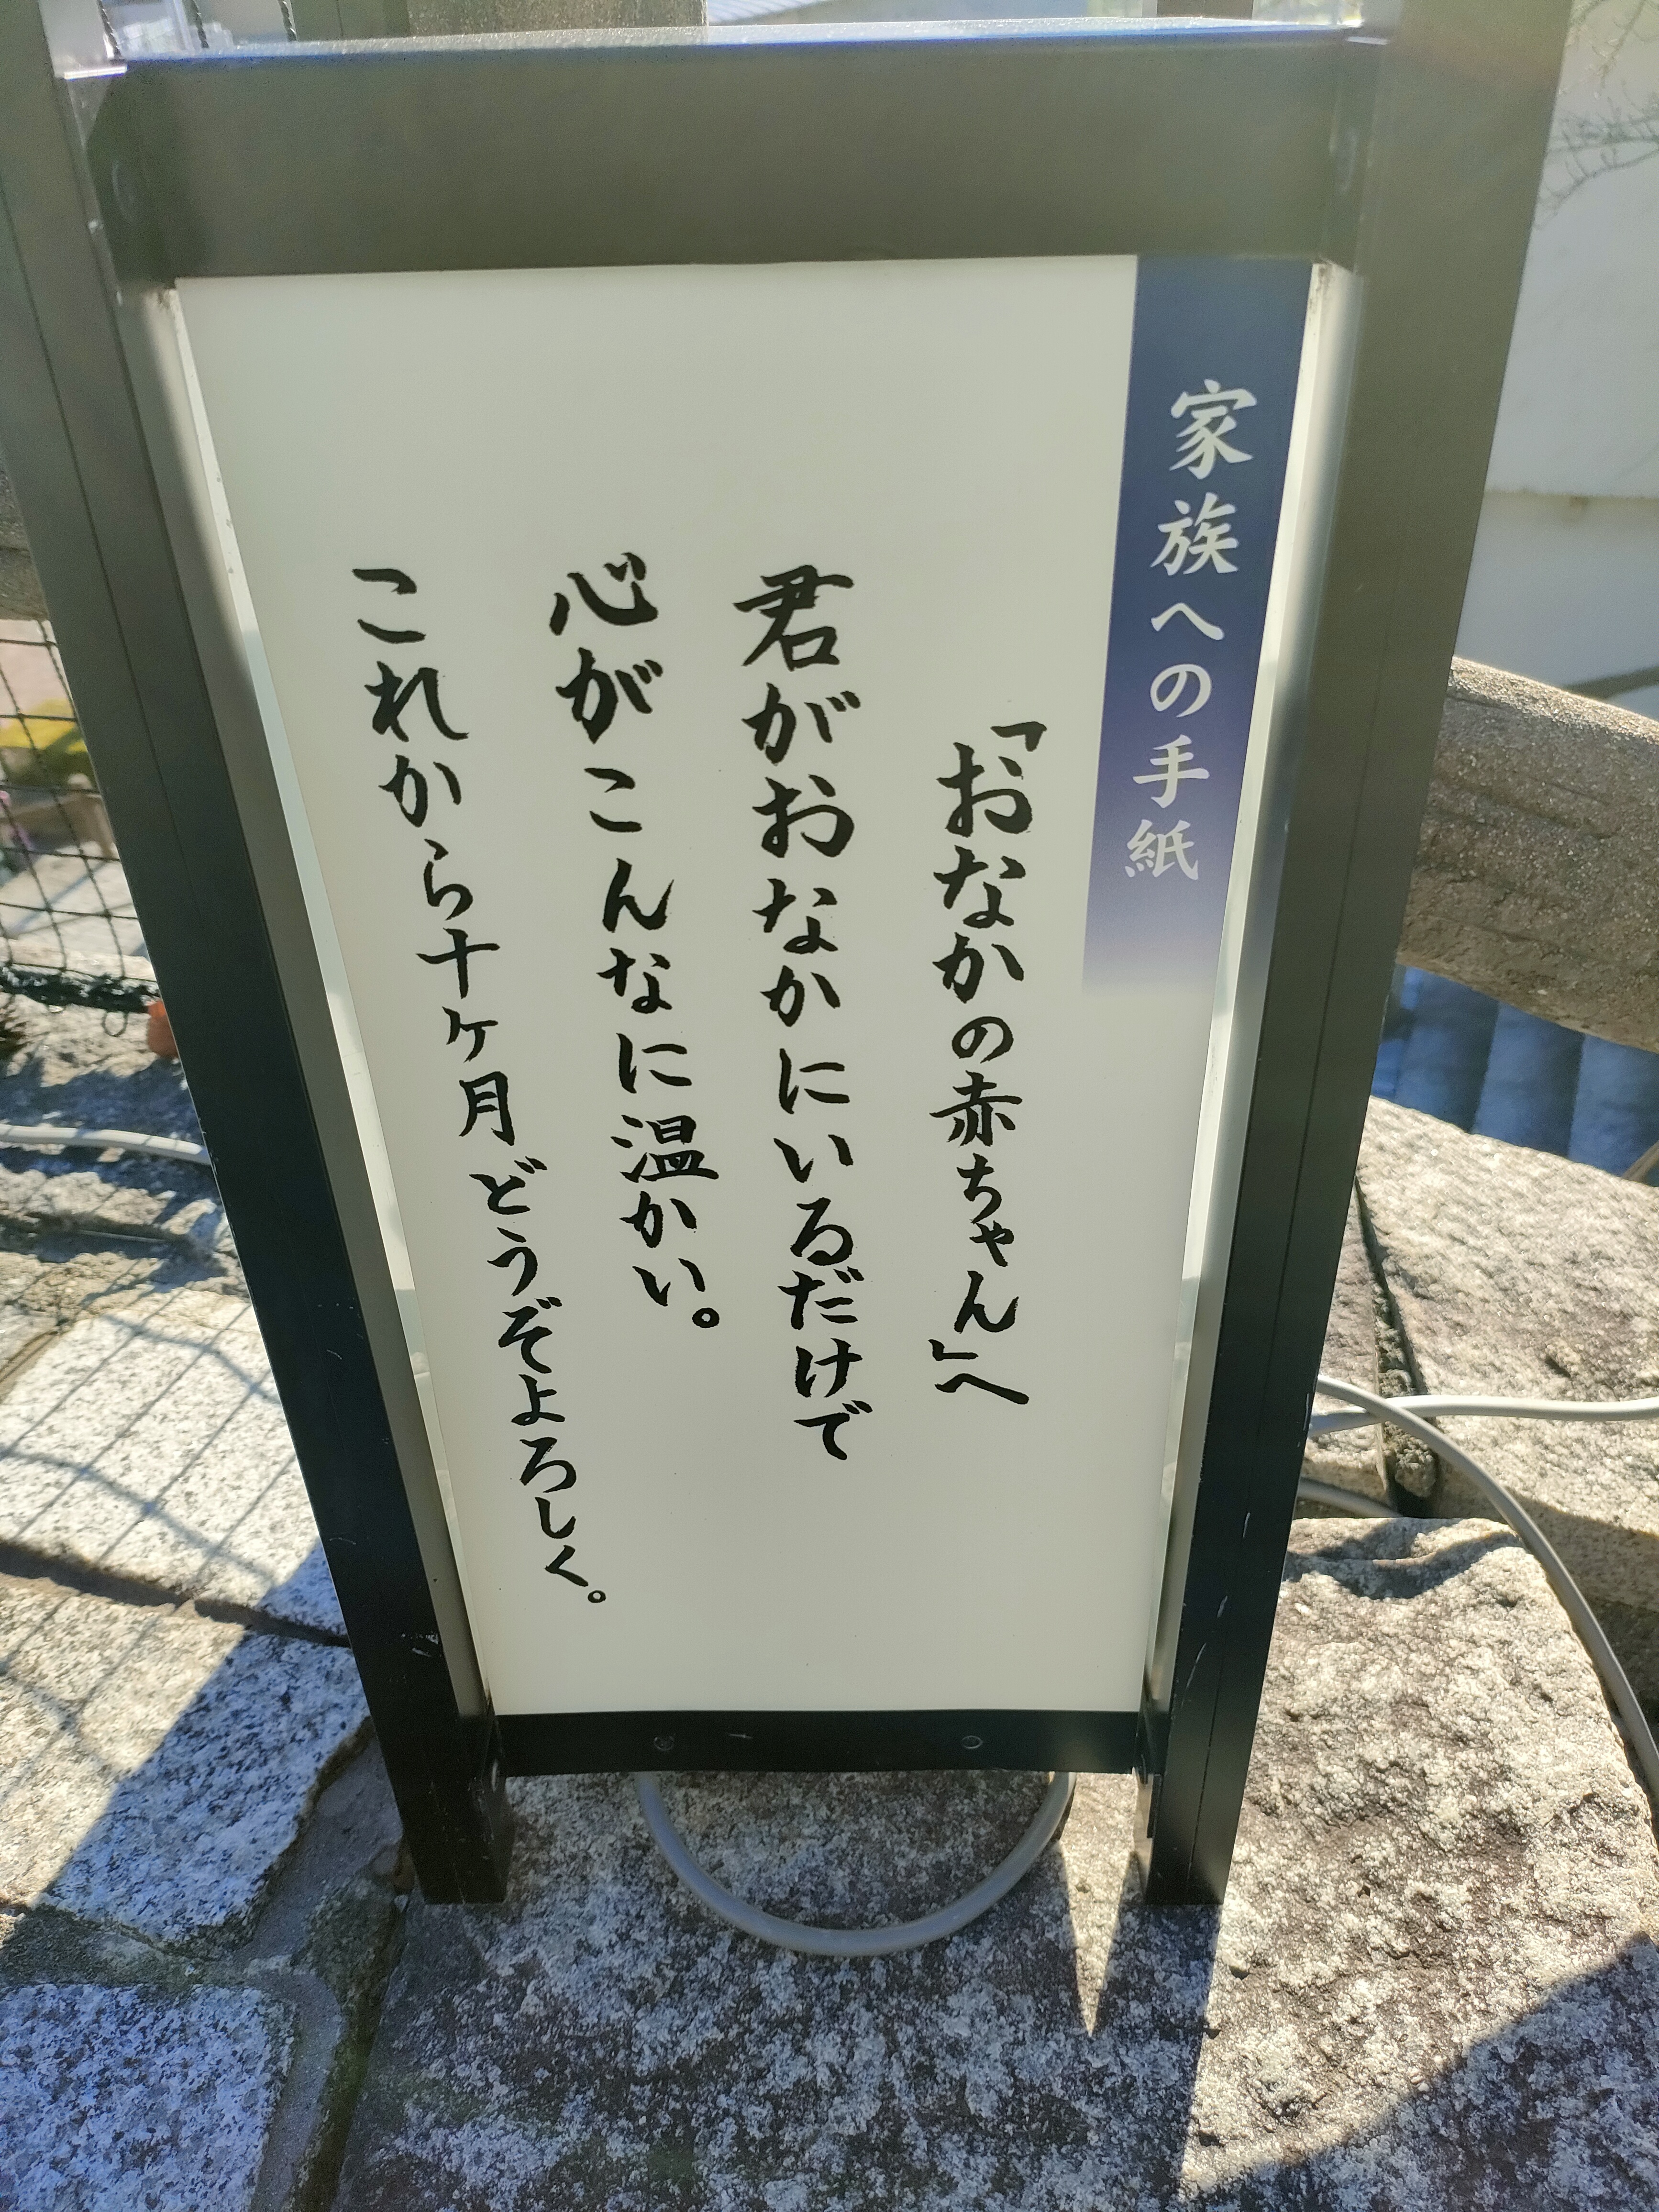 家族への手紙
「おなかの赤ちゃん」へ
君がおなかにいるだけで
心がこんなに温かい。
これから十ヶ月どうぞよろしく。